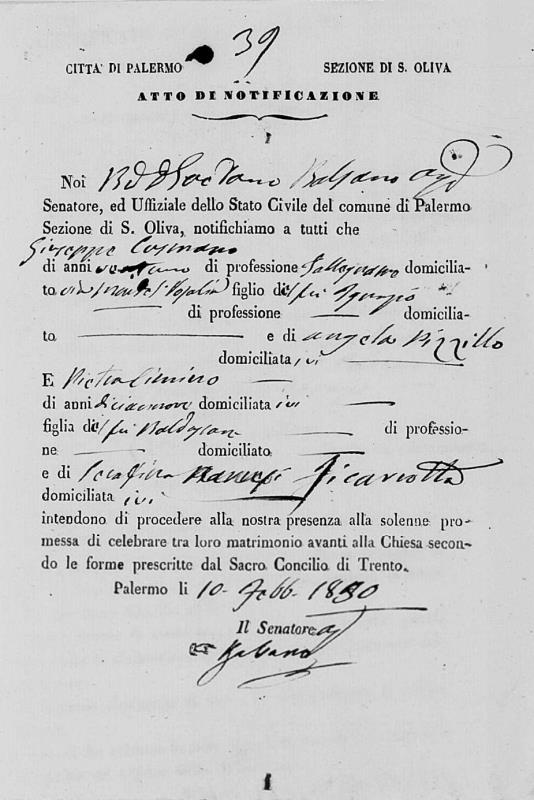 39
CITTA' DI PALERMO SEZIONE DI S. OLIVA
ATTO DI NOTIFICAZIONE
Noi
Senatore, ed Uffiziale dello Stato Civile del comune di Palermo
Sezione di S. Oliva, notifichiamo a tutti che
Giuseppe Cusmano
di anni di professione domicilia-
to figlio del fù Ignazio
di professione domicilia-
to e di Angela Rizzillo
domiciliata ivi
E Pietra Cimino
di anni diciannove domiciliata ivi
figlia del fù di professio-
ne domiciliato
e di Serafina Ficarrotta
domiciliata ivi
intendono di procedere alla nostra presenza alla solenne pro-
messa di celebrare tra loro matrimonio avanti alla Chiesa secon-
do le forme prescritte dal Sacro Concilio di Trento.
Palermo li 10 Febb. 1830
Il Senatore